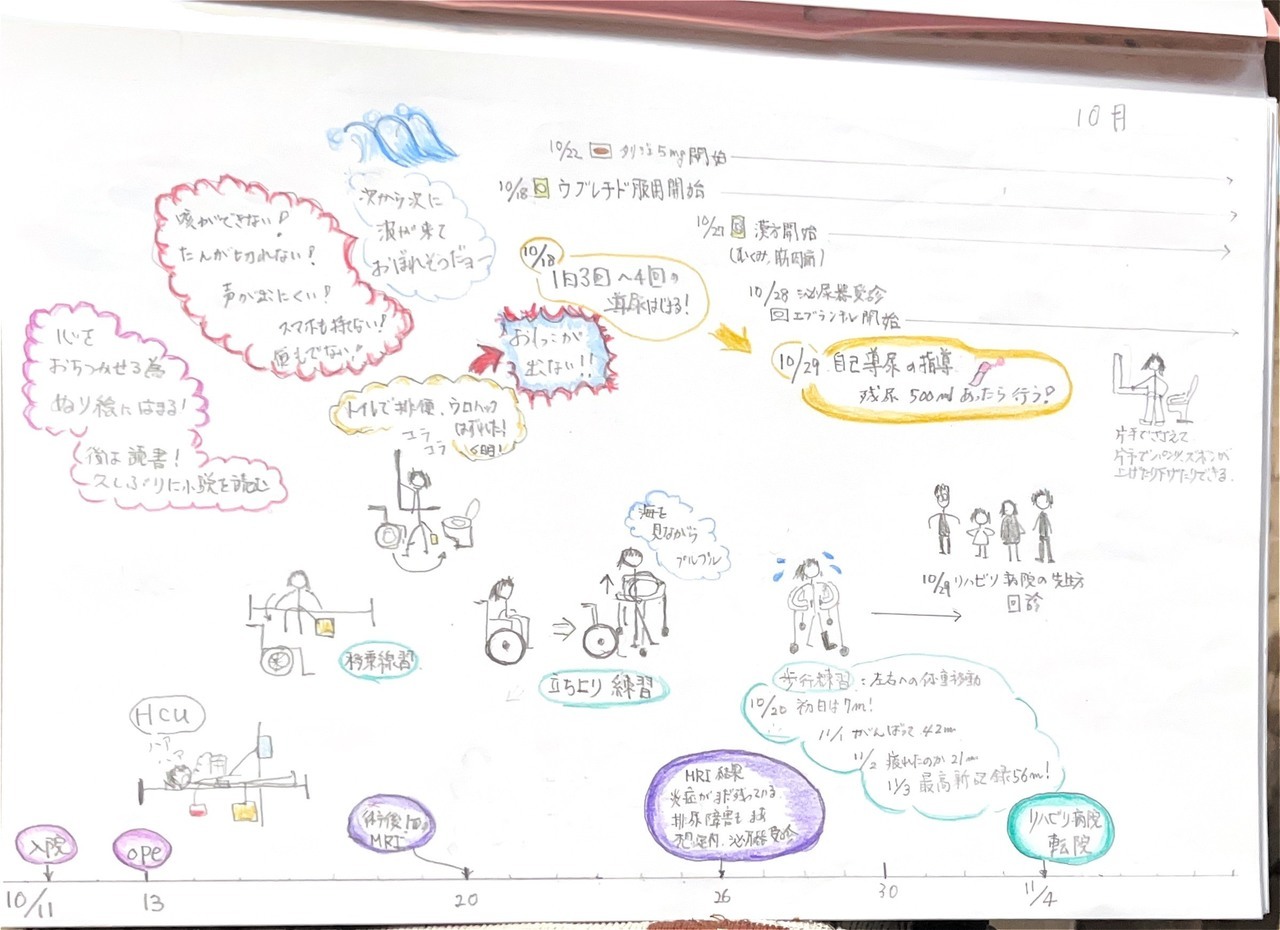 10月
10/22 タリージェ5mg開始
10/18 ウブレチド服用開始
10/27 漢方開始
(むくみ、筋肉痛)
10/28 泌尿器受診
エブランチル開始
次から次に
波が来て
おぼれそうだョー
咳ができない!
たんが切れない!
声が出にくい!
スマホも持てない!
心を
おちつかせる為
ぬり絵にはまる!
後は読書!
久しぶりに小説を読む
10/18
1日3回〜4回の
導尿はじまる!
おしっこが
出ない!!
10/29 自己導尿の指導
残尿 500mlあったら行う?
トイレで排便、ウロバッグ
はずれた!
ユラ
ユラ
片手でささえて
片手でパンツ、ズボンが
上げたり下げたりできる.
海を
見ながら
プルプル
10/29 リハビリ病院の先生方
回診
移乗練習
立ち上り練習
歩行練習:左右への体重移動
10/20 初日は7m!
11/1 がんばって 42m
11/2 疲れたのか 21m
11/3 最高新記録56m!
HCU
MRI 結果
炎症がまだ残っている
排尿障害も まあ
想定内、泌尿器受診
術後1回目
MRI
入院
ope
リハビリ病院
転院
10/11
13
20
26
30
11/4